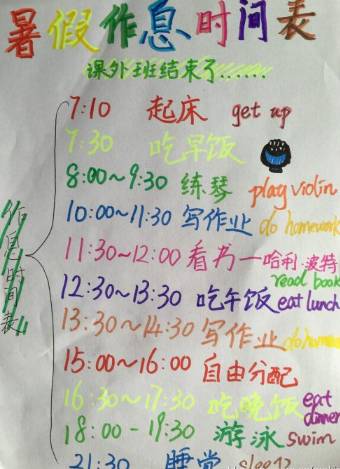 暑假作息时间表
课外班结束了......
作息时间表
7:10 起床 get up
7:30 吃早饭
8:00~9:30 练琴 play violin
10:00~11:30 写作业 do homework
11:30~12:00 看书一哈利·波特
read book
12:30~13:30 吃午饭 eat lunch
13:30~14:30 写作业 do homew
15:00~16:00 自由分配
16:30~17:30 吃晚饭 eat dinner
18:00-19:30 游泳 swim
21:30 睡觉 sleep